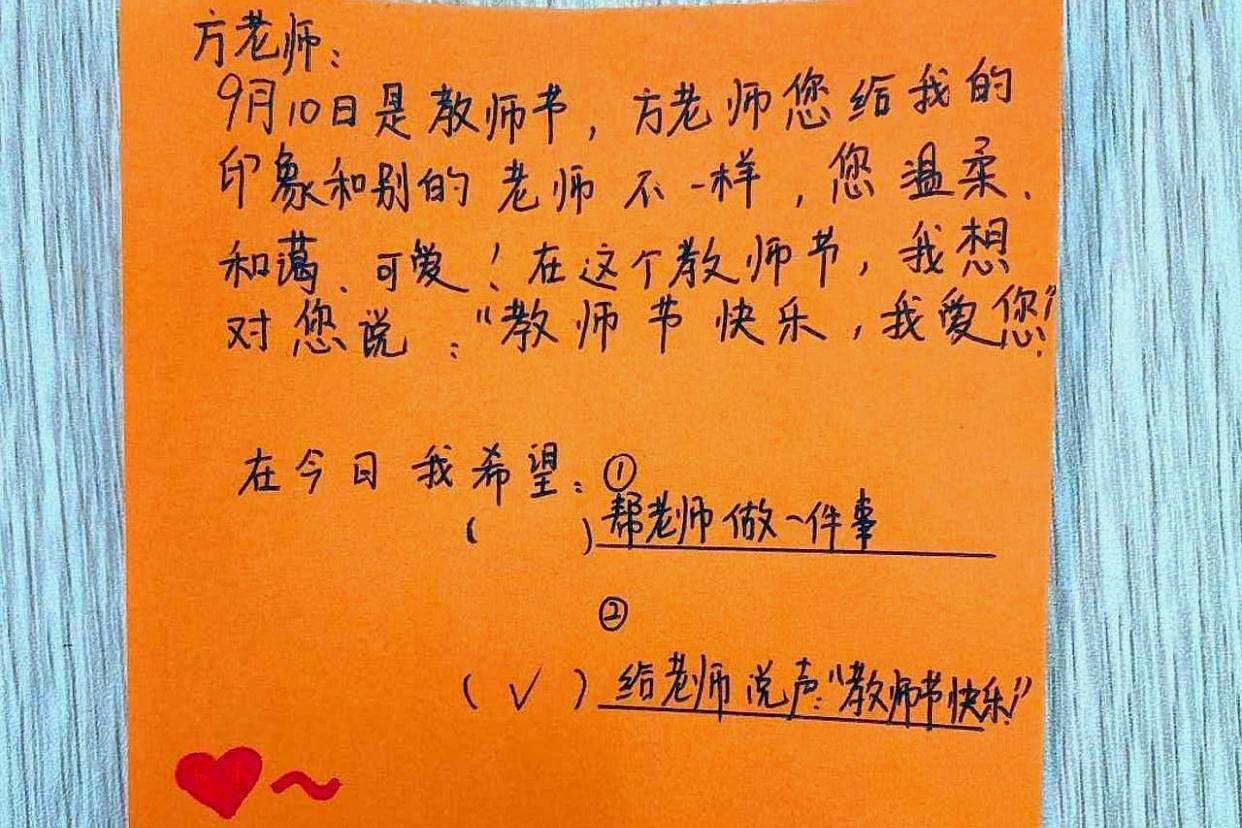 方老师：
9月10日是教师节，方老师您给我的
印象和别的老师不一样，您温柔、
和蔼、可爱！在这个教师节，我想
对您说："教师节快乐，我爱您！"
在今日我希望：①
(  )帮老师做一件事
②
(√)给老师说声："教师节快乐！"